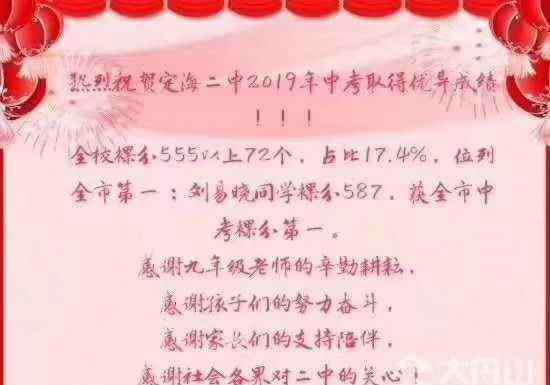 热烈祝贺定海二中2019年中考取得优异成绩
！！！
全校裸分555以上72个，占比17.4%，位列
全市第一；刘易晓同学裸分587，获全市中
考裸分第一。
感谢九年级老师的辛勤耕耘，
感谢孩子们的努力奋斗，
感谢家长们的支持陪伴，
感谢社会各界对二中的关心！
大舟山